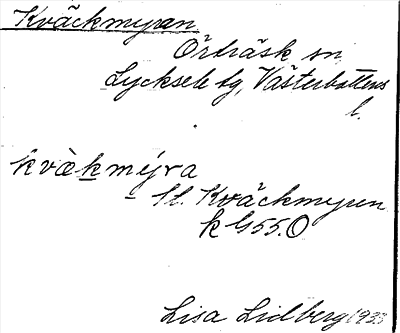 Kväckmyran
Örträsk sn
Lycksele tg, Västerbottens
l.
kvækmýra
St. Kväckmyren
k G55.O
Lisa Lidberg 1933